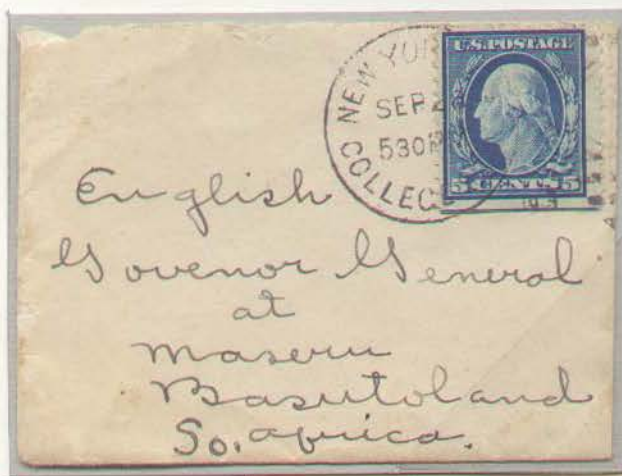 NEW YOR
SEP 2
530P
COLLEGE
U.S. POSTAGE
5 CENTS 5
English
Govenor General
at
Maseru
Basutoland
So. Africa.